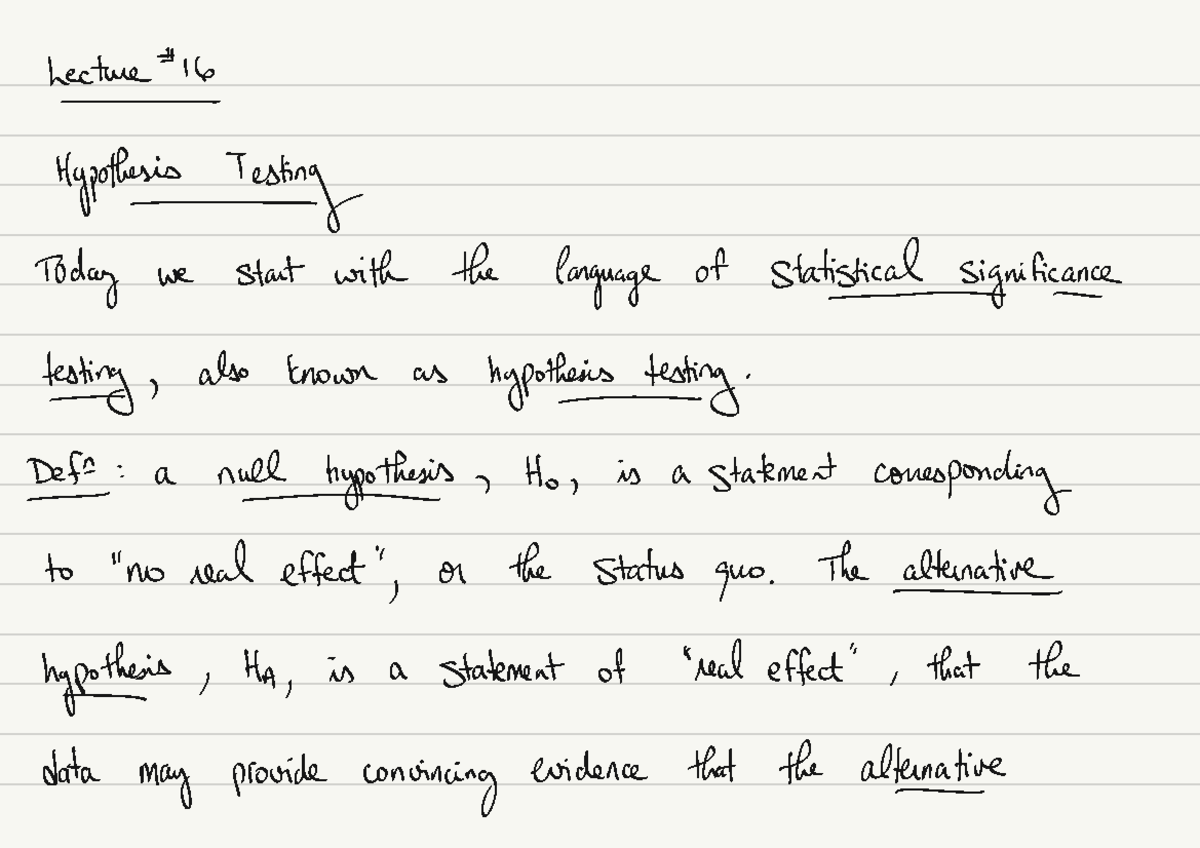 Lecture #16
Hypothesis Testing
Today we start with the language of statistical significance
testing, also known as hypothesis testing.
Defⁿ: a null hypothesis, H₀, is a statement corresponding
to "no real effect", or the status quo. The alternative
hypothesis, Hₐ, is a statement of "real effect", that the
data may provide convincing evidence that the alternative